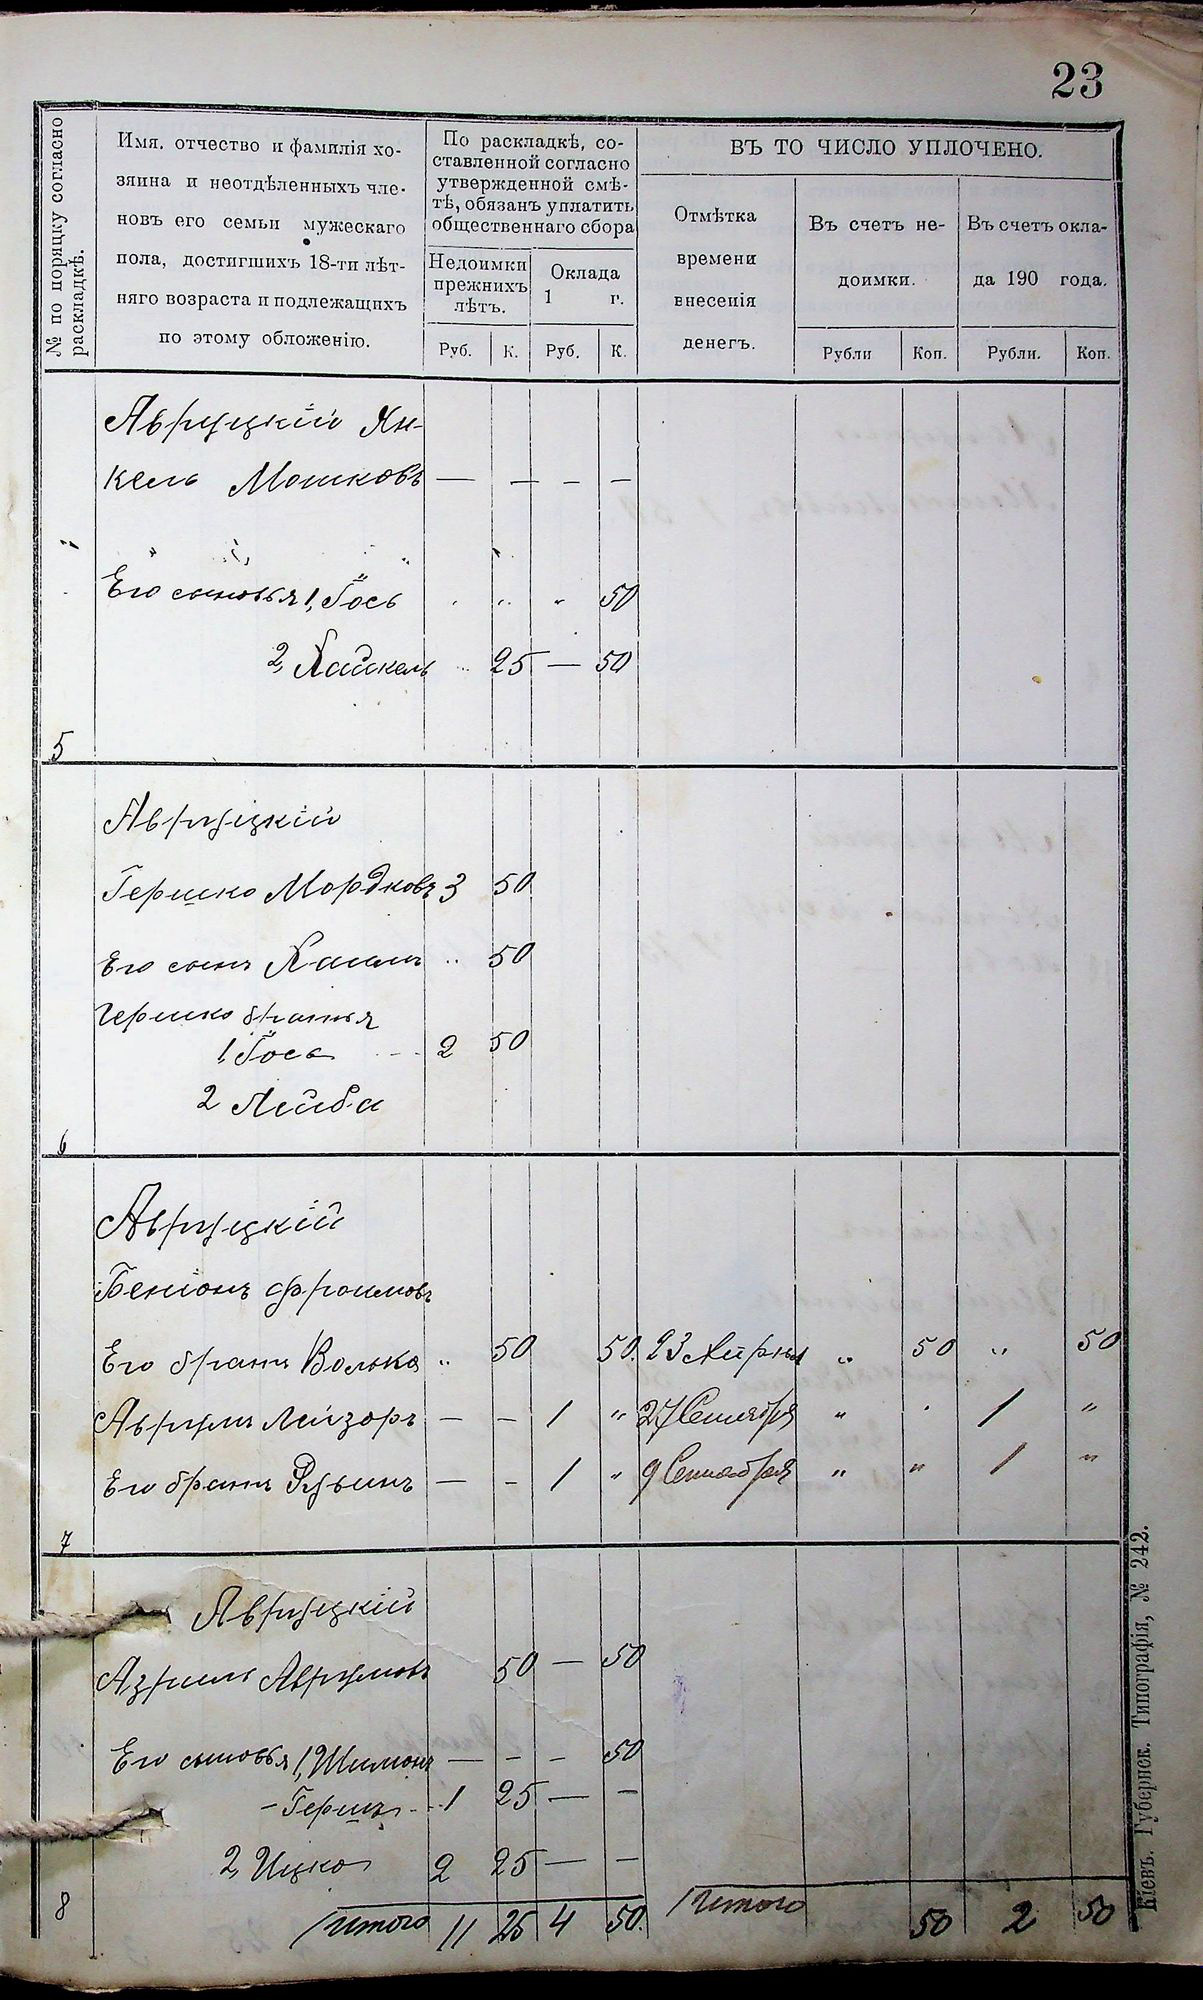 23
№ по порядку согласно раскладкѣ.
Имя. отчество и фамилія хо-
зяина и неотдѣленныхъ чле-
новъ его семьи мужескаго
пола, достигшихъ 18-ти лѣт-
няго возраста и подлежащихъ
по этому обложенію.
По раскладкѣ, со-
ставленной согласно
утвержденной смѣ-
тѣ, обязанъ уплатить
общественнаго сбора
Недоимки
прежнихъ
лѣтъ.
Оклада
1 г.
Руб. К. Руб. К.
ВЪ ТО ЧИСЛО УПЛОЧЕНО.
Отмѣтка
времени
внесенія
денегъ.
Въ счетъ не-
доимки.
Рубли Коп.
Въ счетъ окла-
да 190 года.
Рубли. Коп.
Аврущкій Ян-
кель Мошковъ — — — —
Его сыновья 1, Іось " " " 50
2, Хаскель " 25 — 50
5
Авруцкій
Гершко Мордковъ 3 50
Его сынъ Хаимъ " 50
Гершко братья
1, Іось 2 50
2 Лейба
6
Авруцкій
Бенionъ Фроимовъ
Его братъ Волько " 50 50. 23 Апрѣля " 50 " 50
Аврумъ Лейзоръ — — 1 " 27 Сентября " " 1 "
Его братъ Рувинъ — — 1 " 9 Сентября " " 1 "
7
Авруцкій
Азриль Аврумовъ 50 — 50
Его сыновья 1, Шимонъ — — — 50
- Гершъ 1 25 — —
2, Ицко 2 25 — —
8
Итого 11 25 4 50. Итого 50 2 50
Кіевъ. Губернск. Типографія, № 242.